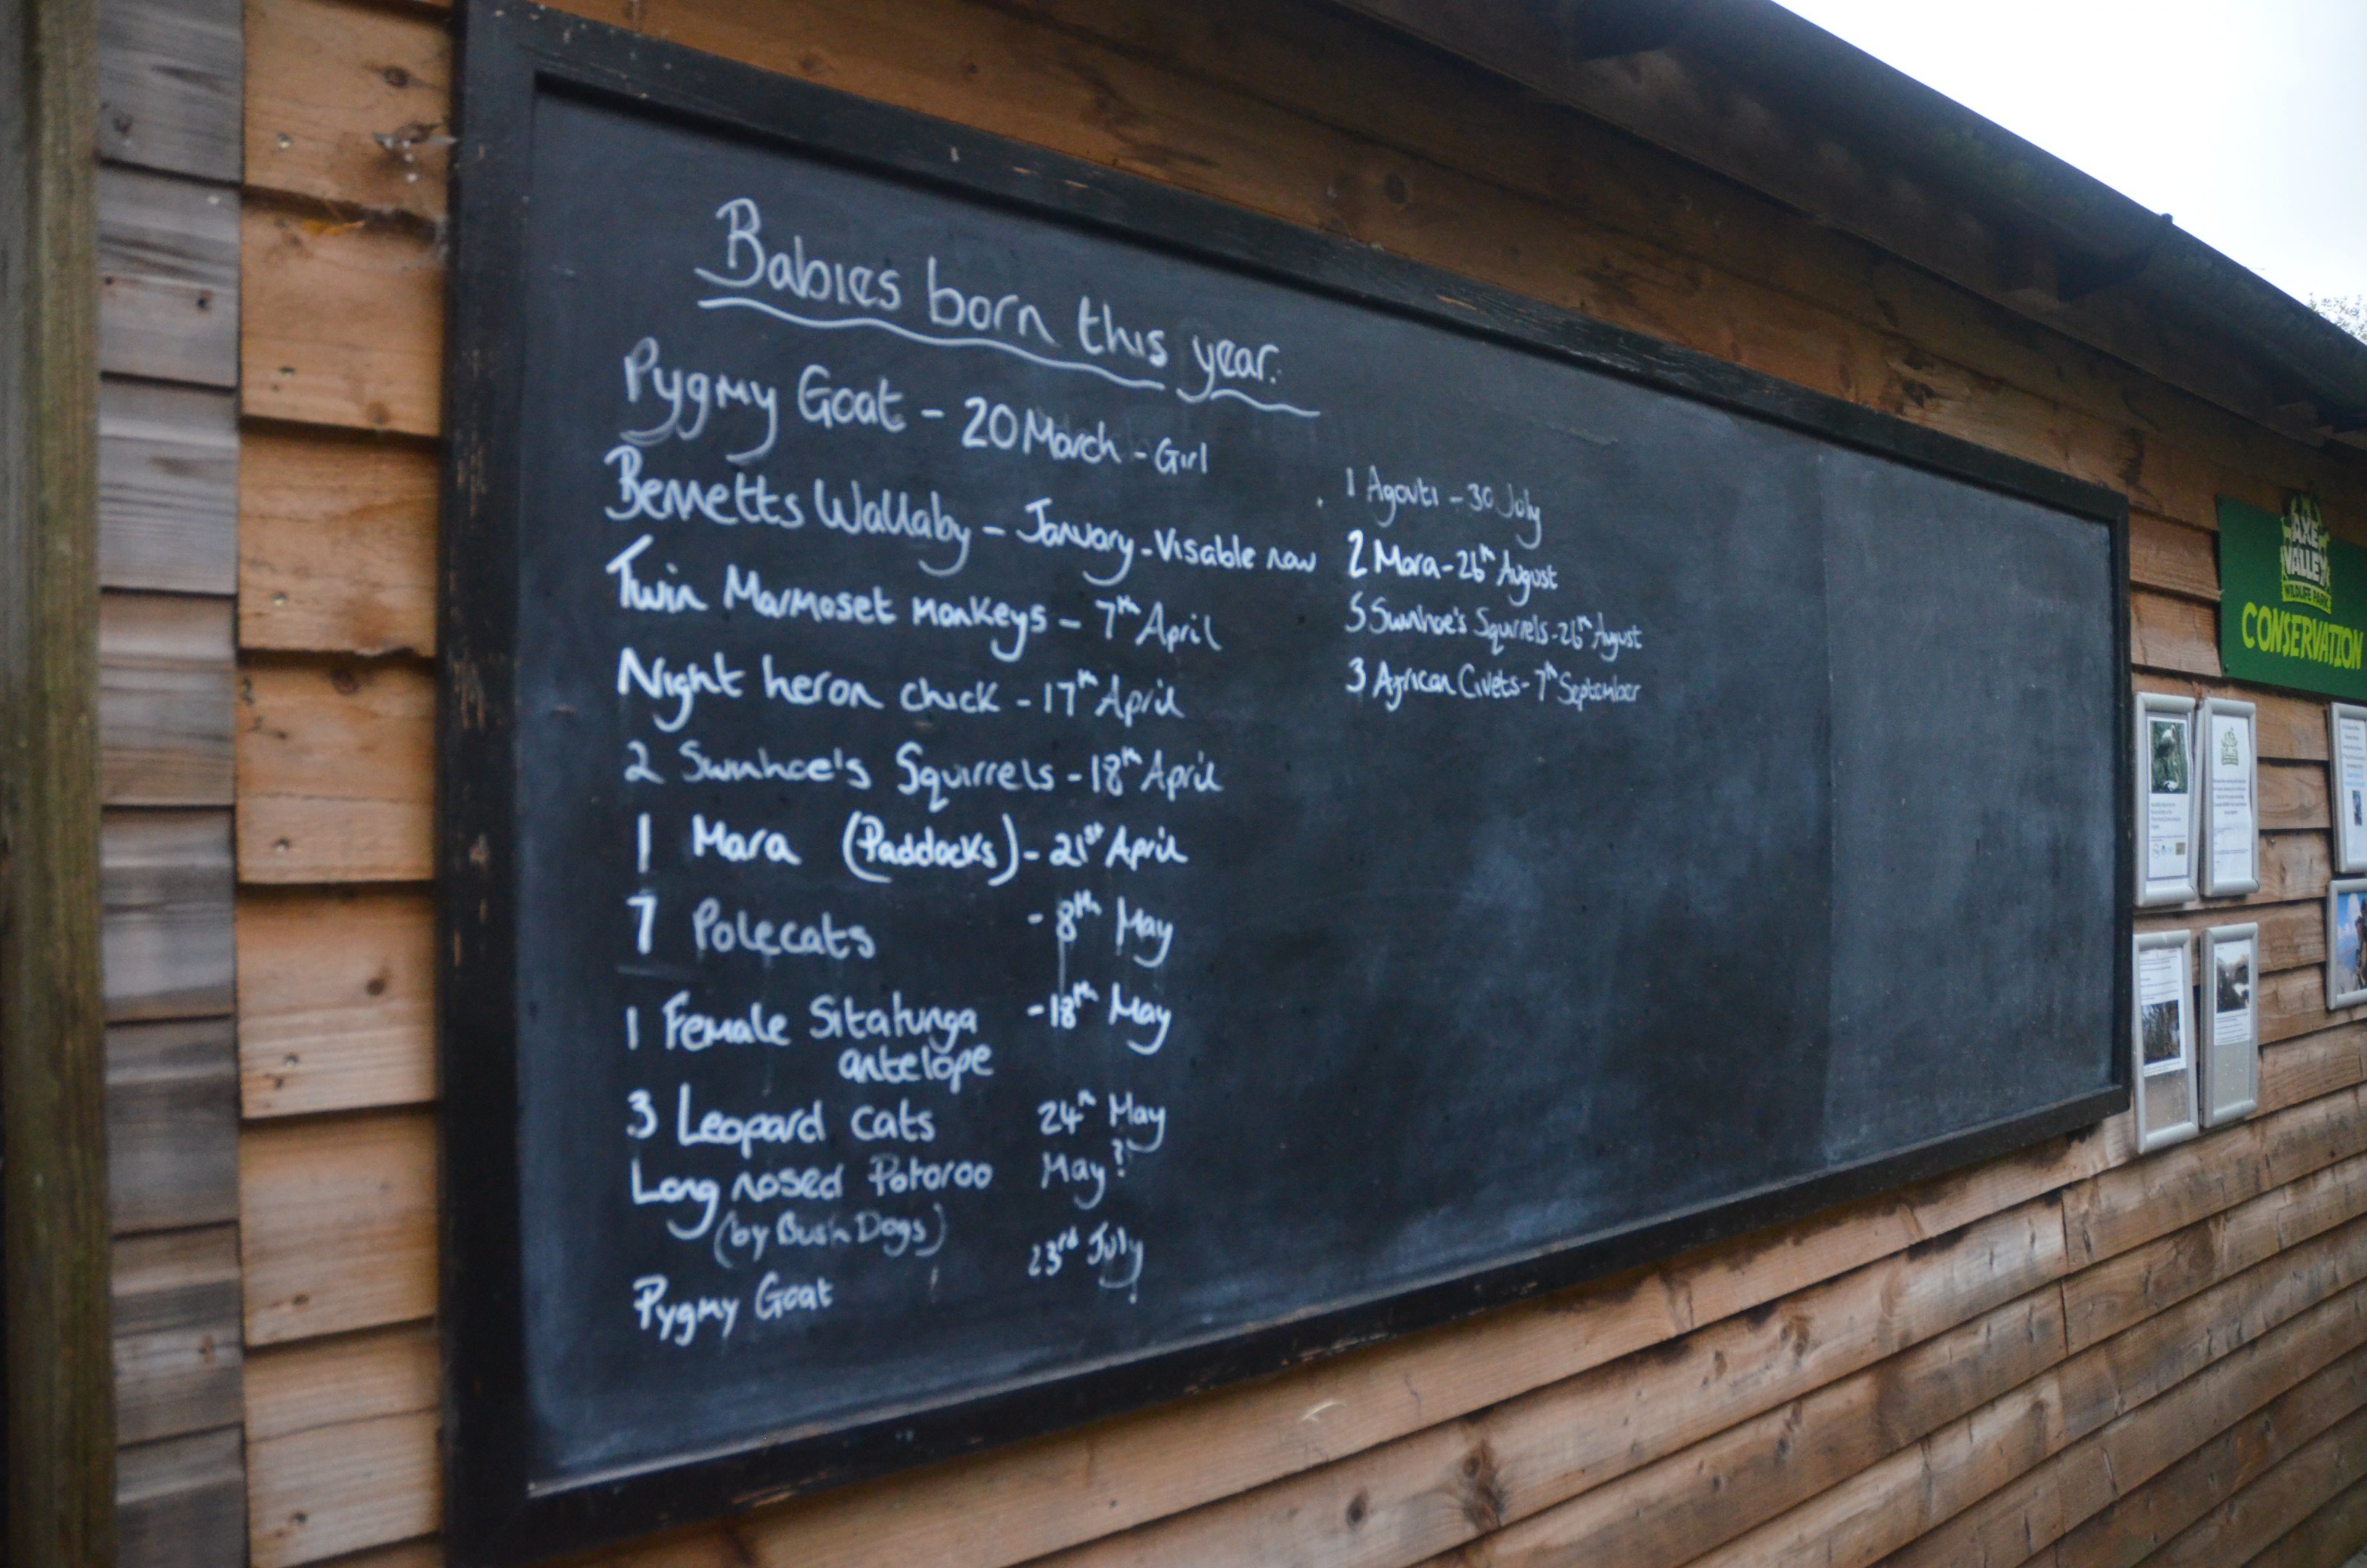 Babies born this year.
Pygmy Goat - 20 March - Girl
Bennetts Wallaby - January - Visable now
Twin Marmoset monkeys - 7th April
Night heron chick - 17th April
2 Swinhoe's Squirrels - 18th April
1 Mara (Paddocks) - 21st April
7 Polecats - 8th May
1 Female Sitatunga - 18th May
antelope
3 Leopard cats 24th May
Long nosed Potoroo May?
(by Bush Dogs)
Pygmy Goat 23rd July
1 Agouti - 30 July
2 Mara - 26th August
5 Swinhoe's Squirrels - 26th August
3 African Civets - 7th September
AXE
VALLEY
WILDLIFE PARK
CONSERVATION